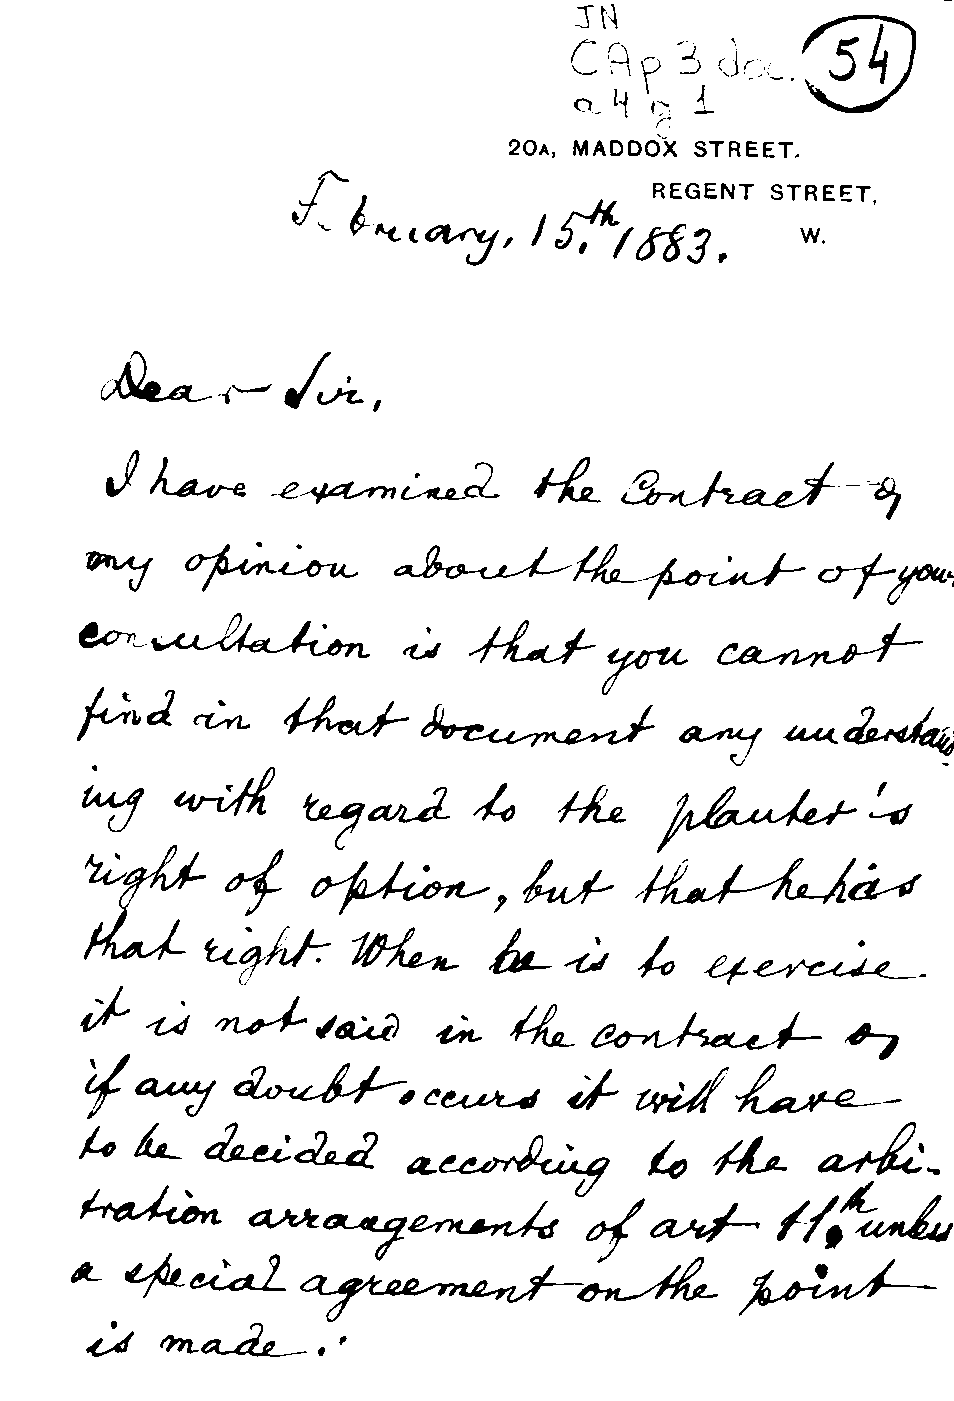 JN
CAp 3 doc. 54
a 4 g 1
20A, MADDOX STREET.
REGENT STREET,
W.
February, 15.th 1883.
Dear Sir,
I have examined the Contract &
my opinion about the point of your
consultation is that you cannot
find in that document any understand
ing with regard to the planter's
right of option, but that he has
that right. When he is to exercise
it is not said in the contract &
if any doubt occurs it will have
to be decided according to the arbi-
tration arrangements of art 11.th unless
a special agreement on the point
is made.